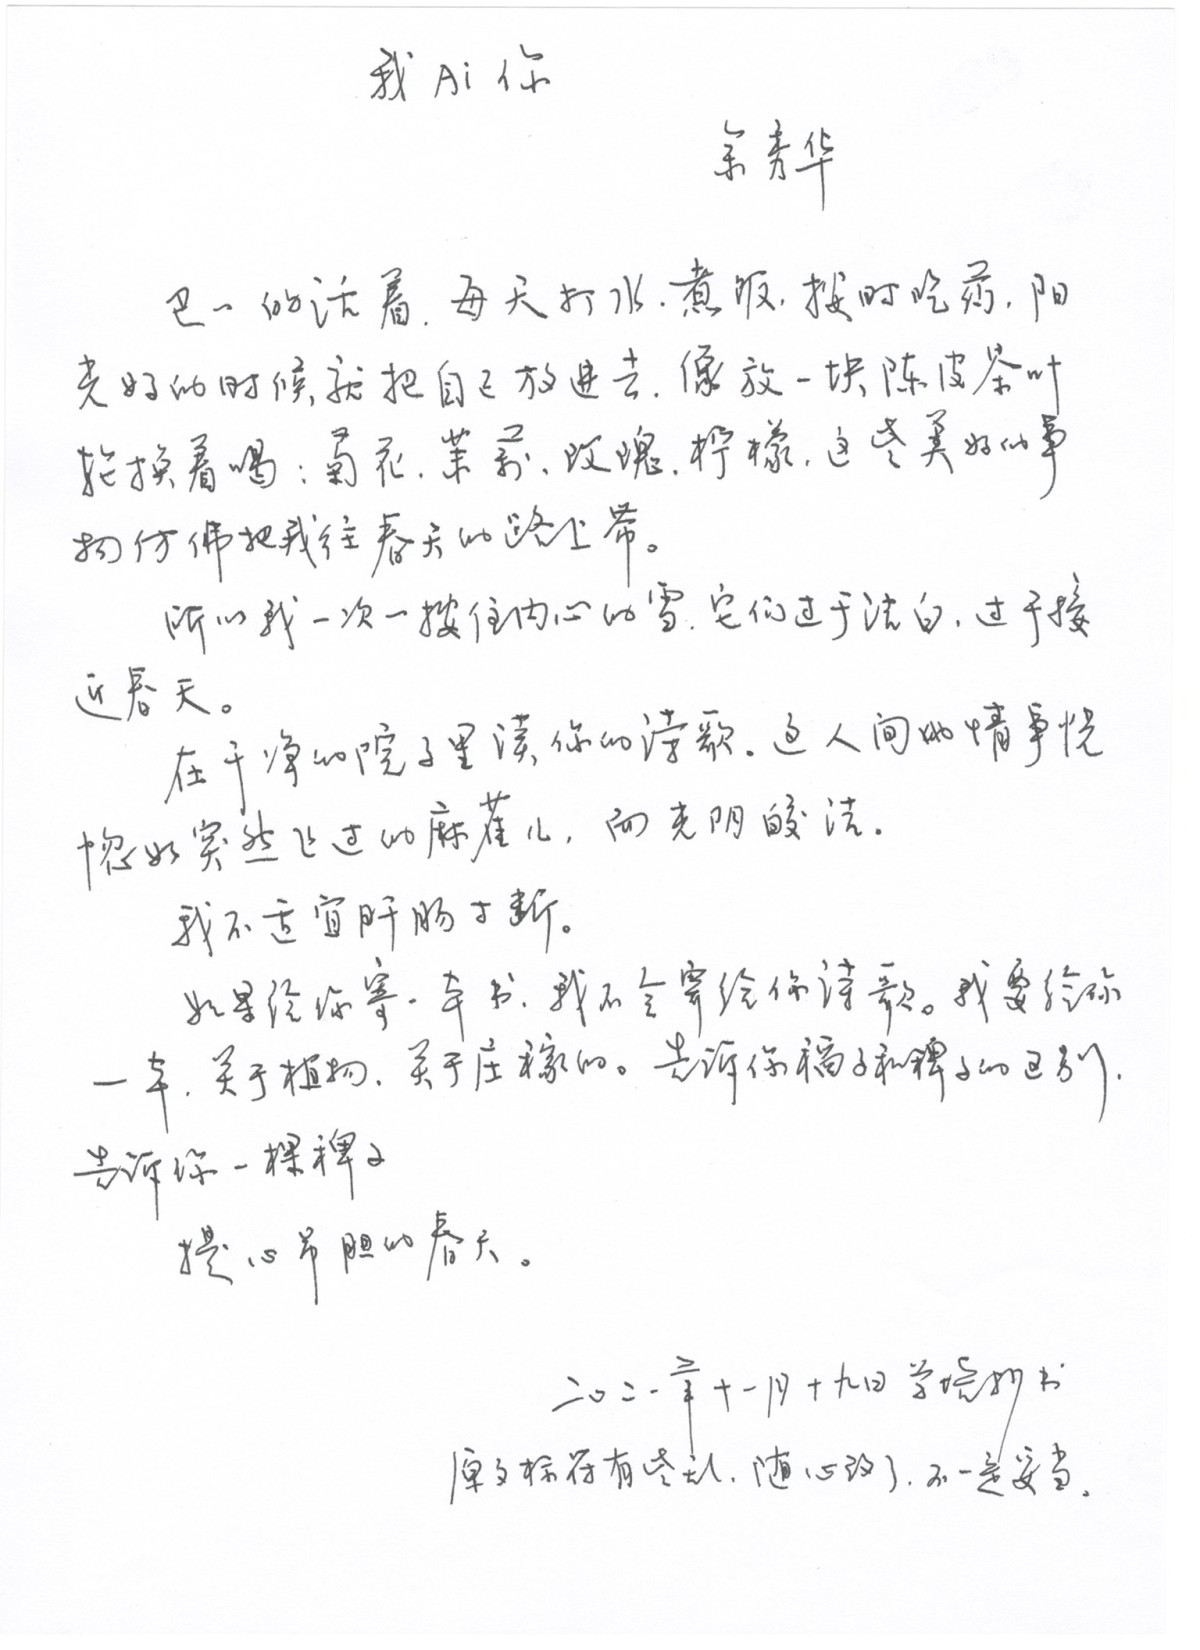 我Ai你
余秀华
巴一的活着，每天打水，煮饭，按时吃药，阳
光好的时候就把自己放进去，像放一块陈皮茶叶
轮换着喝：菊花，茉莉，玫瑰，柠檬，这些美好的事
物仿佛把我往春天的路上带。
所以我一次一按住内心的雪，它们过于洁白，过于接
近春天。
在干净的院子里读你的诗歌。这人间的情事恍
惚如突然飞过的麻雀儿，而光阴皎洁。
我不适宜肝肠寸断。
如果给你寄一本书，我不会寄给你诗歌。我要给你
一本，关于植物，关于庄稼的。告诉你稻子和稗子的区别，
告诉你一棵稗子
提心吊胆的春天。
二〇二一年十一月十九日 学 抄书
原文标符有些乱，随心改了，不一定妥当。